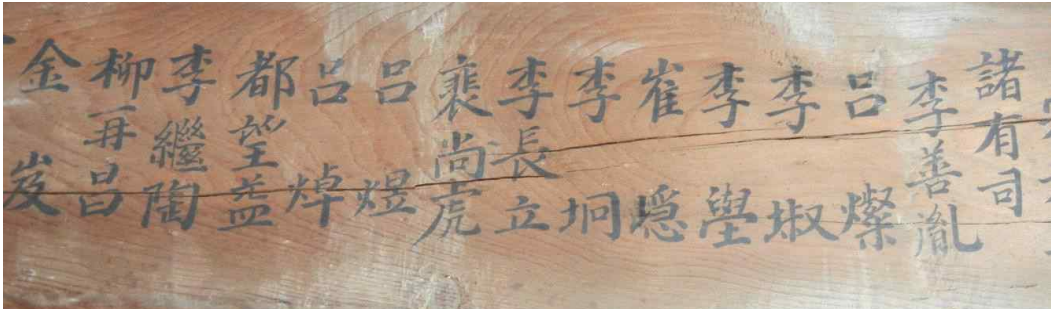 諸有司
李善胤
呂燦
李埱
李壆
崔
李坰
李長立
裵尚虎
呂煜
呂焯
都望益
李繼陶
柳再昌
金岌